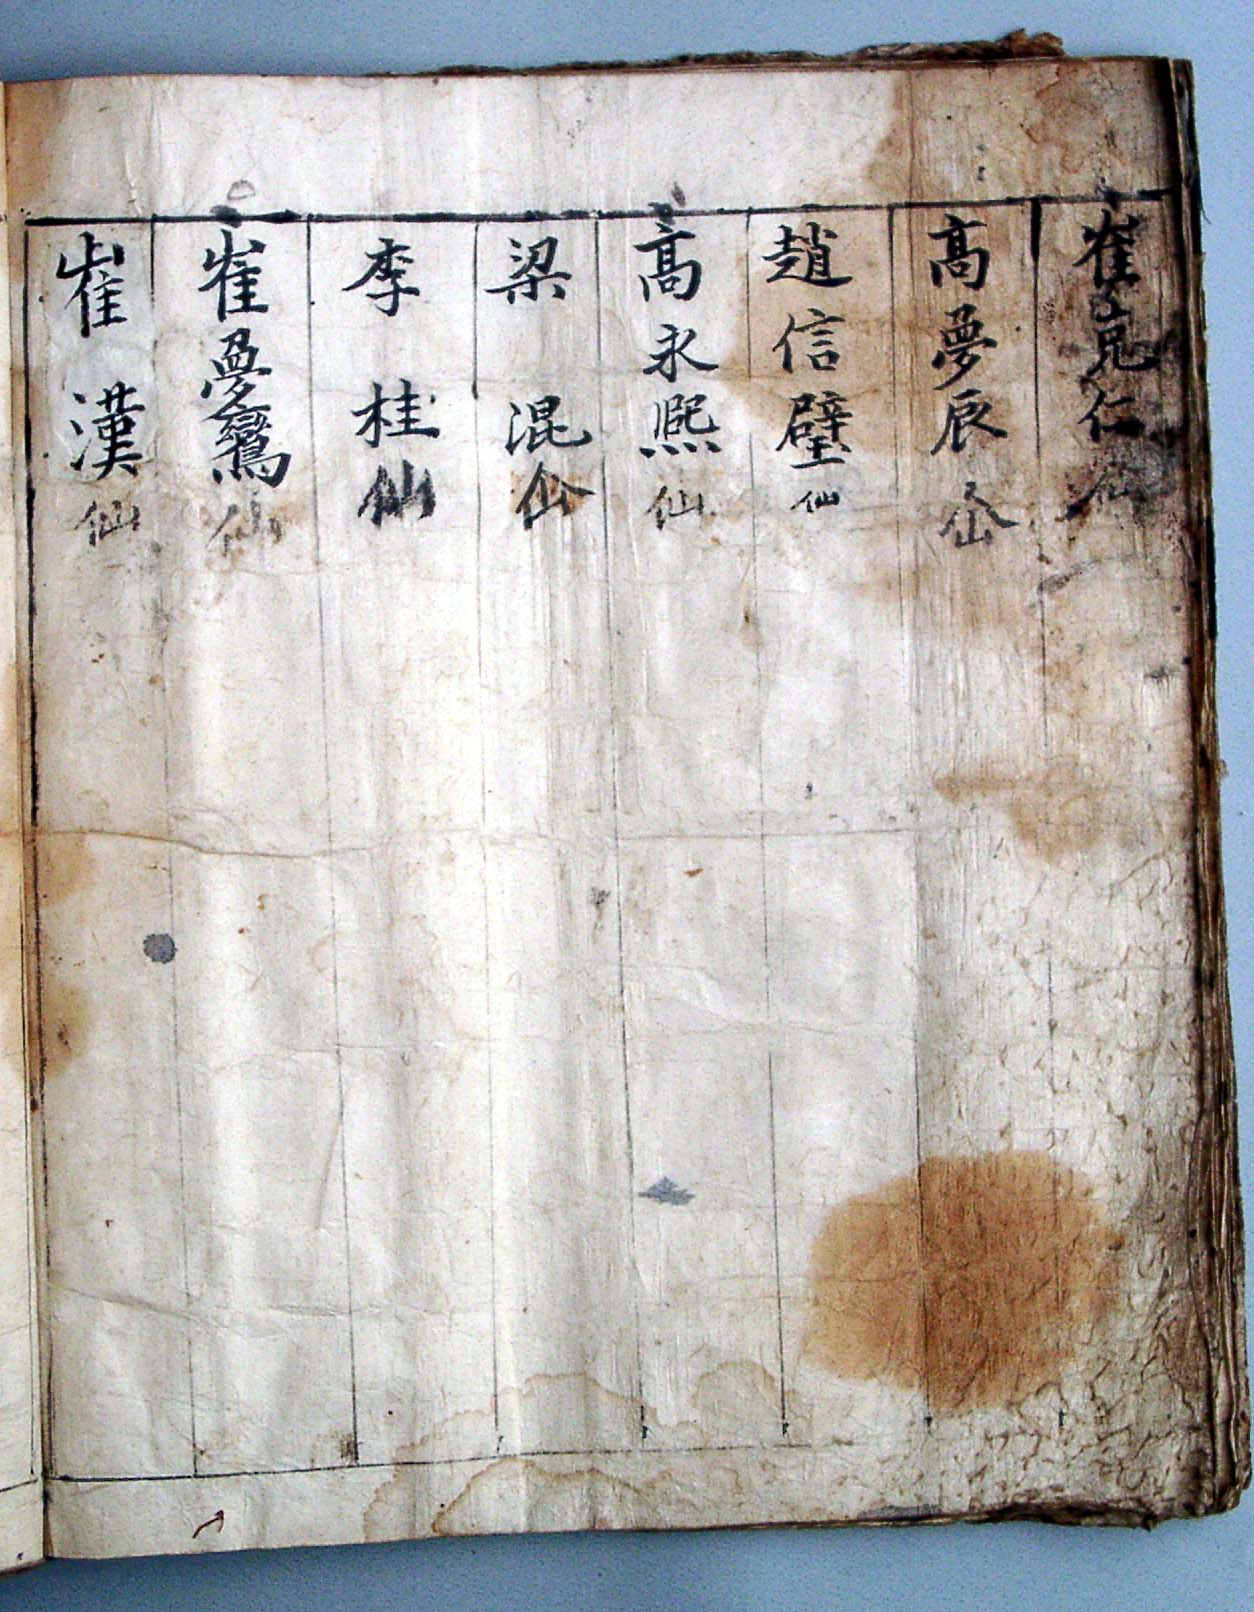 崔克仁仙
高夢辰仚
趙信璧仙
高永熙仙
梁混仚
李桂仙
崔夢鸞仙
崔漢仙